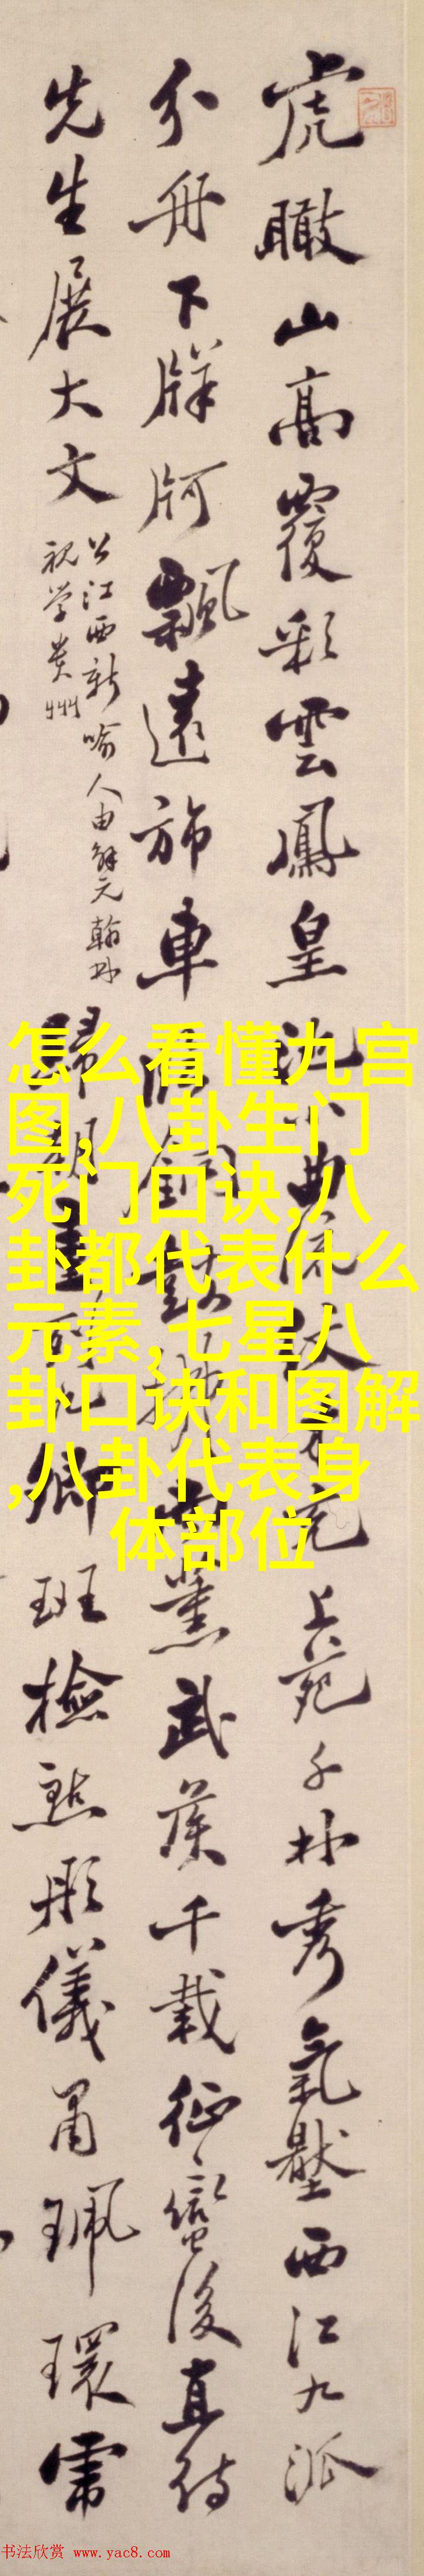 虎瞰山高覆彩雲鳳皇
上苑千林秀氣壓西江九派
分舟下牂牁飄遠旆車
黨武侯千載征蠻後直待
先生展大文
公江西新喻人由解元翰林
視學貴州
卿班檢點形儀肅珮環需
怎么看懂九宫
图,八卦生门
死门口诀,八
卦都代表什么
元素,七星八
卦口诀和图解
,八卦代表身
体部位
书法欣赏 www.yac8.com